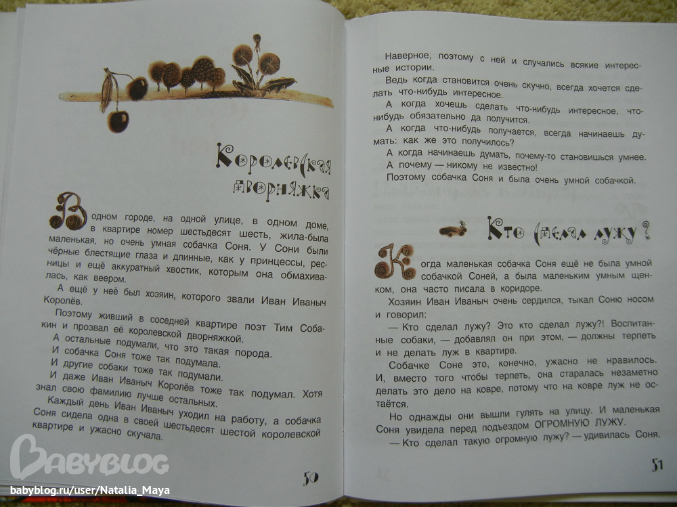 Королевская
дворняжка
В одном городе, на одной улице, в одном доме,
в квартире номер шестьдесят шесть, жила-была
маленькая, но очень умная собачка Соня. У Сони были
чёрные блестящие глаза и длинные, как у принцессы, рес-
ницы и ещё аккуратный хвостик, которым она обмахива-
лась, как веером.
А ещё у неё был хозяин, которого звали Иван Иваныч
Королёв.
Поэтому живший в соседней квартире поэт Тим Соба-
кин и прозвал её королевской дворняжкой.
А остальные подумали, что это такая порода.
И собачка Соня тоже так подумала.
И другие собаки тоже так подумали.
И даже Иван Иваныч Королёв тоже так подумал. Хотя
знал свою фамилию лучше остальных.
Каждый день Иван Иваныч уходил на работу, а собачка
Соня сидела одна в своей шестьдесят шестой королевской
квартире и ужасно скучала.
50
Наверное, поэтому с ней и случались всякие интерес-
ные истории.
Ведь когда становится очень скучно, всегда хочется сде-
лать что-нибудь интересное.
А когда хочешь сделать что-нибудь интересное, что-
нибудь обязательно да получится.
А когда что-нибудь получается, всегда начинаешь ду-
мать: как же это получилось?
А когда начинаешь думать, почему-то становишься умнее.
А почему — никому не известно!
Поэтому собачка Соня и была очень умной собачкой.
Кто сделал лужу?
Когда маленькая собачка Соня ещё не была умной
собачкой Соней, а была маленьким умным щен-
ком, она часто писала в коридоре.
Хозяин Иван Иваныч очень сердился, тыкал Соню носом
и говорил:
— Кто сделал лужу? Это кто сделал лужу?! Воспитан-
ные собаки, — добавлял он при этом, — должны терпеть
и не делать луж в квартире.
Собачке Соне это, конечно, ужасно не нравилось.
И, вместо того чтобы терпеть, она старалась незаметно
сделать это дело на ковре, потому что на ковре луж не ос-
таётся.
Но однажды они вышли гулять на улицу. И маленькая
Соня увидела перед подъездом ОГРОМНУЮ ЛУЖУ.
— Кто сделал такую огромную лужу? — удивилась Соня.
51
BABYBLOG
babyblog.ru/user/Natalia_Maya